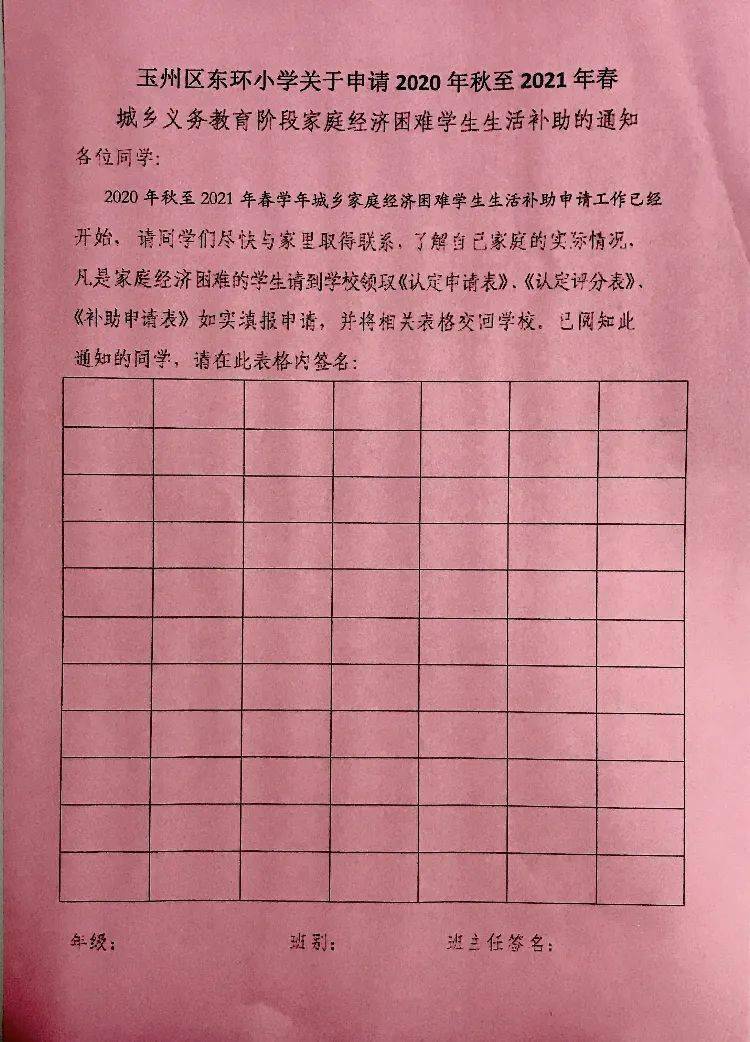 玉州区东环小学关于申请 2020 年秋至 2021 年春
城乡义务教育阶段家庭经济困难学生生活补助的通知
各位同学：
2020 年秋至 2021 年春学年城乡家庭经济困难学生生活补助申请工作已经
开始，请同学们尽快与家里取得联系，了解自己家庭的实际情况，
凡是家庭经济困难的学生请到学校领取《认定申请表》、《认定评分表》、
《补助申请表》如实填报申请，并将相关表格交回学校。已阅知此
通知的同学，请在此表格内签名：
年级： 班别： 班主任签名：